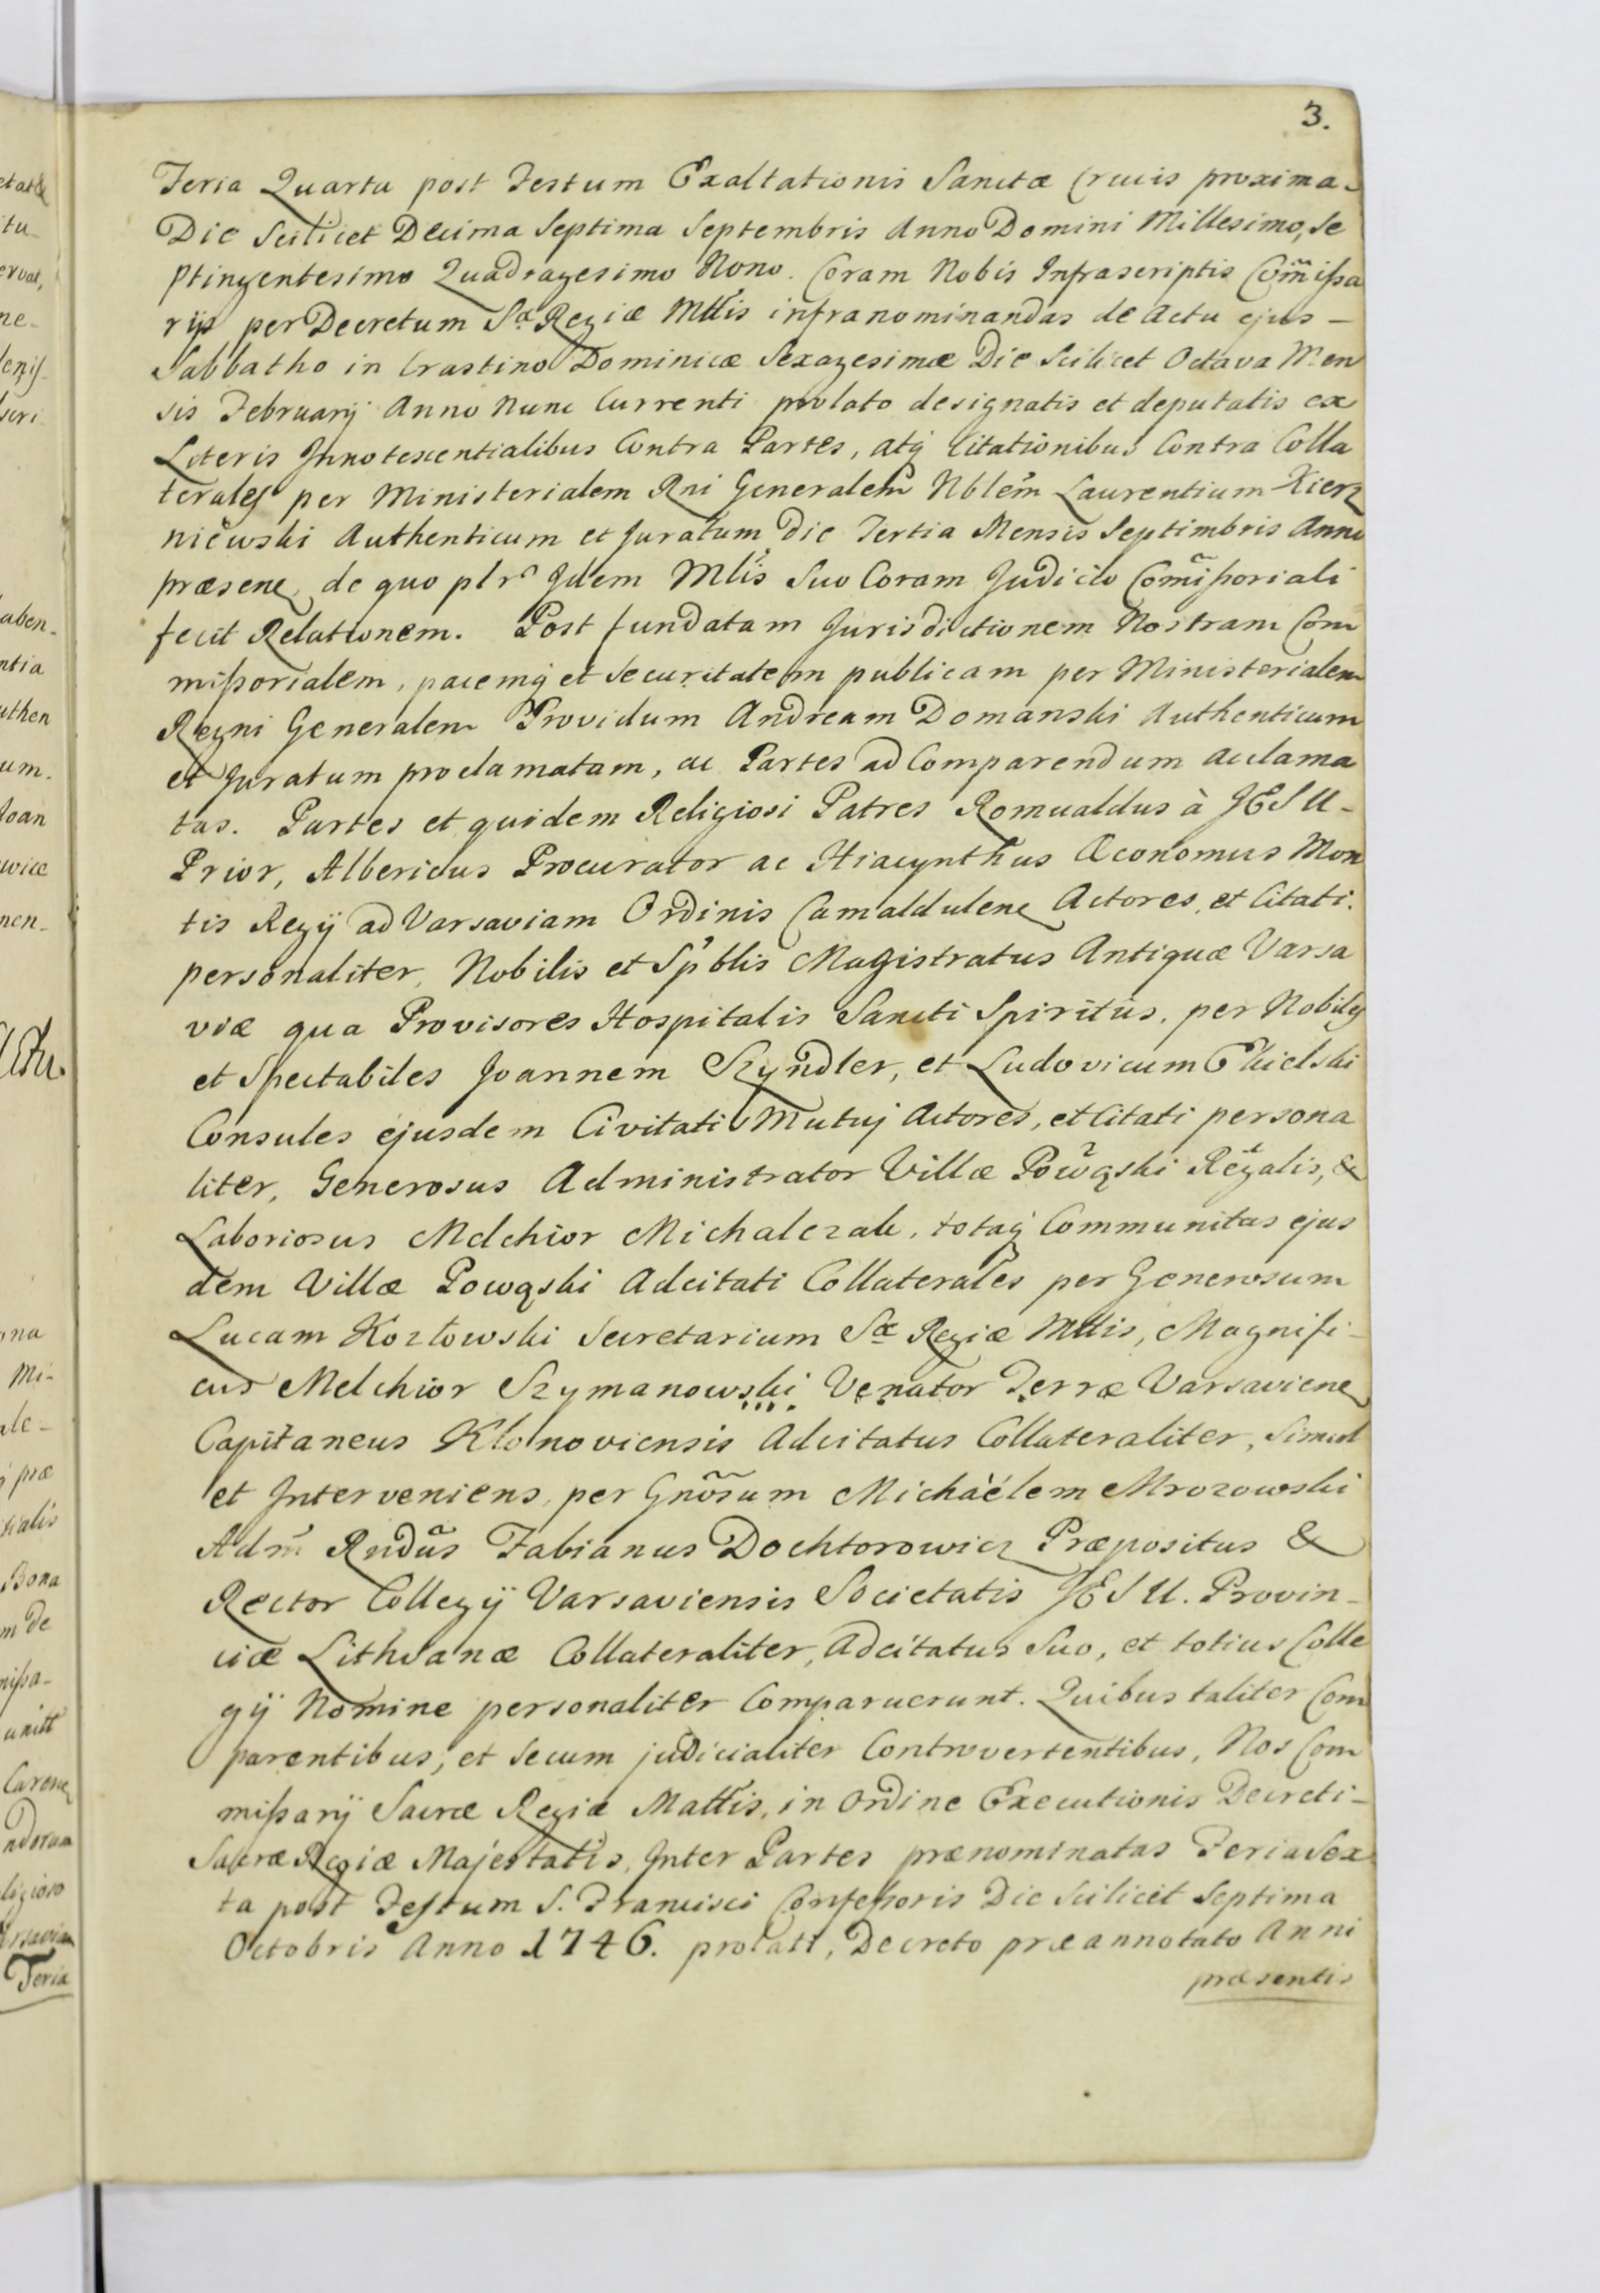 3.
Feria Quarta post Festum Exaltationis Sanctæ Crucis proxima-
Die Scilicet Decima Septima Septembris Anno Domini Millesimo, Se
ptingentesimo Quadragesimo Nono. Coram Nobis Infrascriptis Com̃ißa
rijs per Decretum Sæ Regiæ Mttis infranominandas de Actu ejus -
Sabbatho in Crastino Dominicæ Sexagesimæ Die Scilicet Octava Men
sis Februarij Anno Nunc Currenti prolato designatis et deputatis ex
Literis Innotescentialibus Contra Partes, atq́ Citationibus Contra Colla
terales per Ministerialem Rni Generalem Nblem Laurentium Kierz
niewski Authenticum et Juratum Die Tertia Mensis Septimbris Anno
præsene, de quo plr Idem Mlis Suo Coram Judicio Com̃ißoriali
fecit Relationem. Post fundatam Jurisdictionem Nostram Com
mißorialem, pacemq́ et Securitatem publicam per Ministerialem
Regni Generalem Providum Andream Domanski Authenticum
et Juratum proclamatam, ac Partes ad Comparendum Acclama
tas. Partes et quidem Religiosi Patres Romualdus à JESU-
Prior, Albericus Procurator ac Hiacynthus Œconomus Mon
tis Regij ad Varsaviam Ordinis Camaldulene Actores, et Citati.
personaliter, Nobilis et Spblis Magistratus Antiquæ Varsa
viæ qua Provisores Hospitalis Sancti Spiritus, per Nobiles
et Spectabiles Joannem Szyndler, et Ludovicum Chielski
Consules ejusdem Civitatis Mutuj Actores, et Citati persona
liter, Generosus Administrator Villæ Powąski Regalis, &
Laboriosus Melchior Michalczak, totaq́ Communitas ejus
dem Villæ Powąski Adcitati Collaterales per Generosum
Lucam Kozłowski Secretarium Sæ Regiæ Mttis, Magnifi-
cus Melchior Szymanowski Venator Terræ Varsaviene
Capitaneus Klonoviensis Adcitatus Collateraliter, Simul
et Interveniens, per Gnõsum Michaèlem Mrozowski
Adm Rndus Fabianus Dochtorowicz Præpositus &
Rector Collegij Varsaviensis Societatis JESU. Provin-
ciæ Lithvanæ Collateraliter, Adcitatus Suo, et totius Colle
gij Nomine personaliter Comparuerunt. Quibus taliter Com
parentibus, et Secum judicialiter Controvertentibus, Nos Com
mißarij Sacræ Regiæ Mattis, in Ordine Executionis Decreti-
Sacræ Regiæ Majestatis, Inter Partes prænominatas Feria Sex
ta post Festum S. Francisci Confeßoris Die Scilicet Septima
Octobris Anno 1746. prolati, Decreto præannotato Anni
præsentis